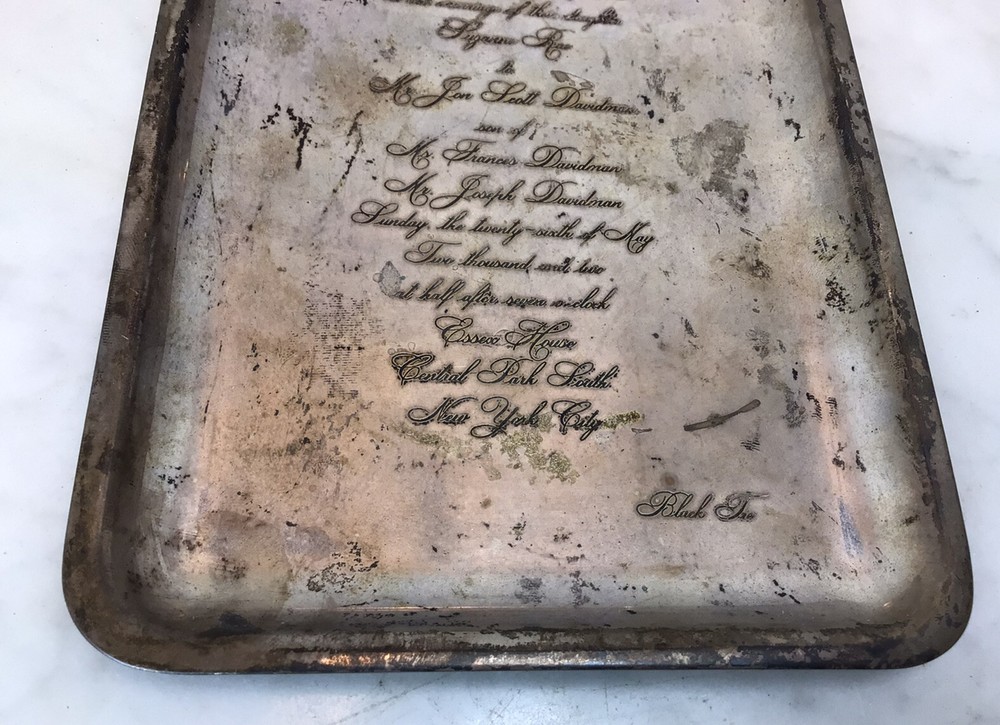 marriage of their daughter
Suzanne Rae
to
Mr. Jon Scott Davidman
son of
Ms. Frances Davidman
Mr. Joseph Davidman
Sunday, the twenty-sixth of May
Two thousand and two
at half after seven o'clock
Essex House
Central Park South
New York City
Black Tie